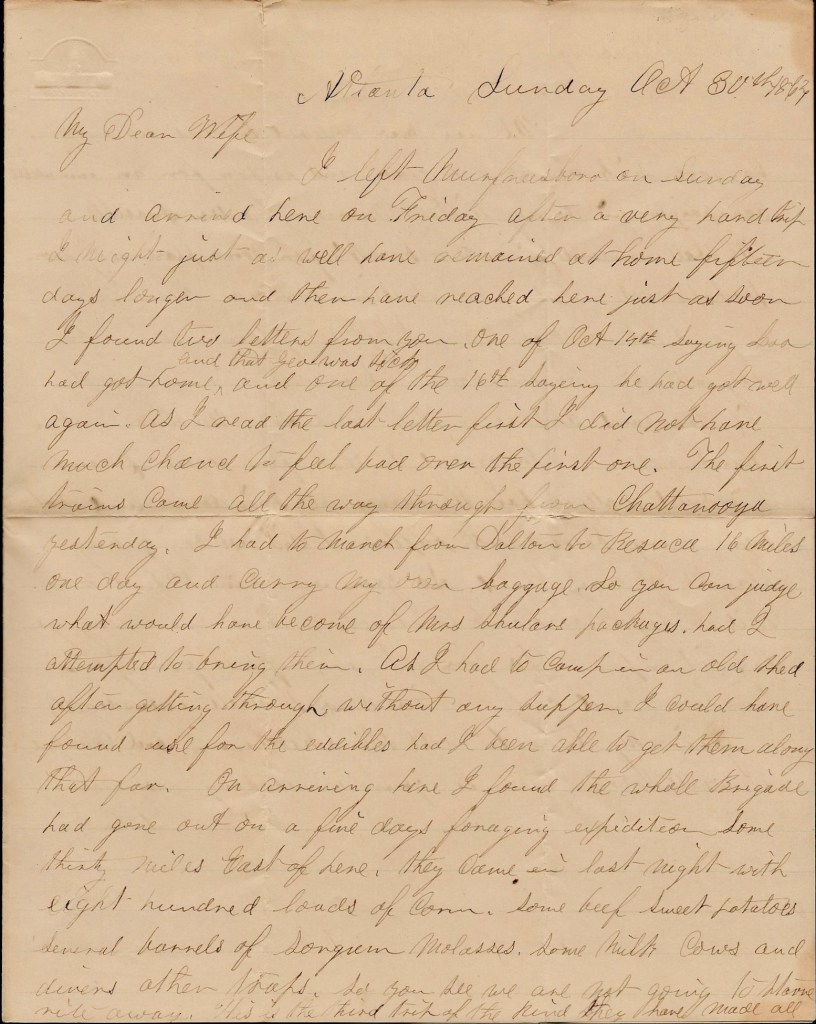 Atlanta Sunday Oct 30th 1864
My Dear Wife
I left Murfreesboro on Sunday
and arrived here on Friday after a very hard trip
I might just as well have remained at home fifteen
days longer and then have reached here just as soon
I found two letters from you, one of Oct 14th saying
and that Geo was sick
had got home, and one of the 16th saying he had got well
again. As I read the last letter first I did not have
much chance to feel bad over the first one. The first
trains came all the way through from Chattanooga
yesterday. I had to march from Dalton to Resaca 16 miles
one day and carry my own baggage. So you can judge
what would have become of Mrs Shulars packages, had I
attempted to bring them. As I had to camp in an old shed
after getting through, without any supper, I could have
found use for the eddibles had I been able to get them along
that far. On arriving here I found the whole Brigade
had gone out on a five days foraging expidition some
thirty miles East of here. they came in last night with
eight hundred loads of Corn. some beef sweet potatoes
several barrels of Sorgum Molasses. some Milk Cows and
divers other traps. So you see we are not going to starve
rite away. This is the third trip of the kind they have made all